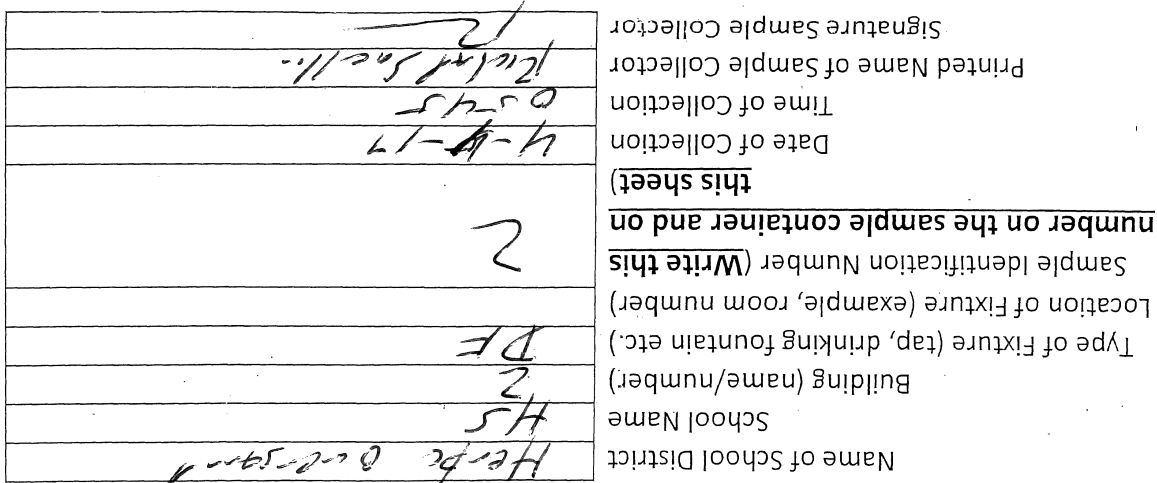 Name of School District
School Name HS
Building (name/number) 2
Type of Fixture (tap, drinking fountain etc.) DF
Location of Fixture (example, room number)
Sample Identification Number (Write this
number on the sample container and on
this sheet) 2
Date of Collection 4-4-17
Time of Collection 0545
Printed Name of Sample Collector
Signature Sample Collector